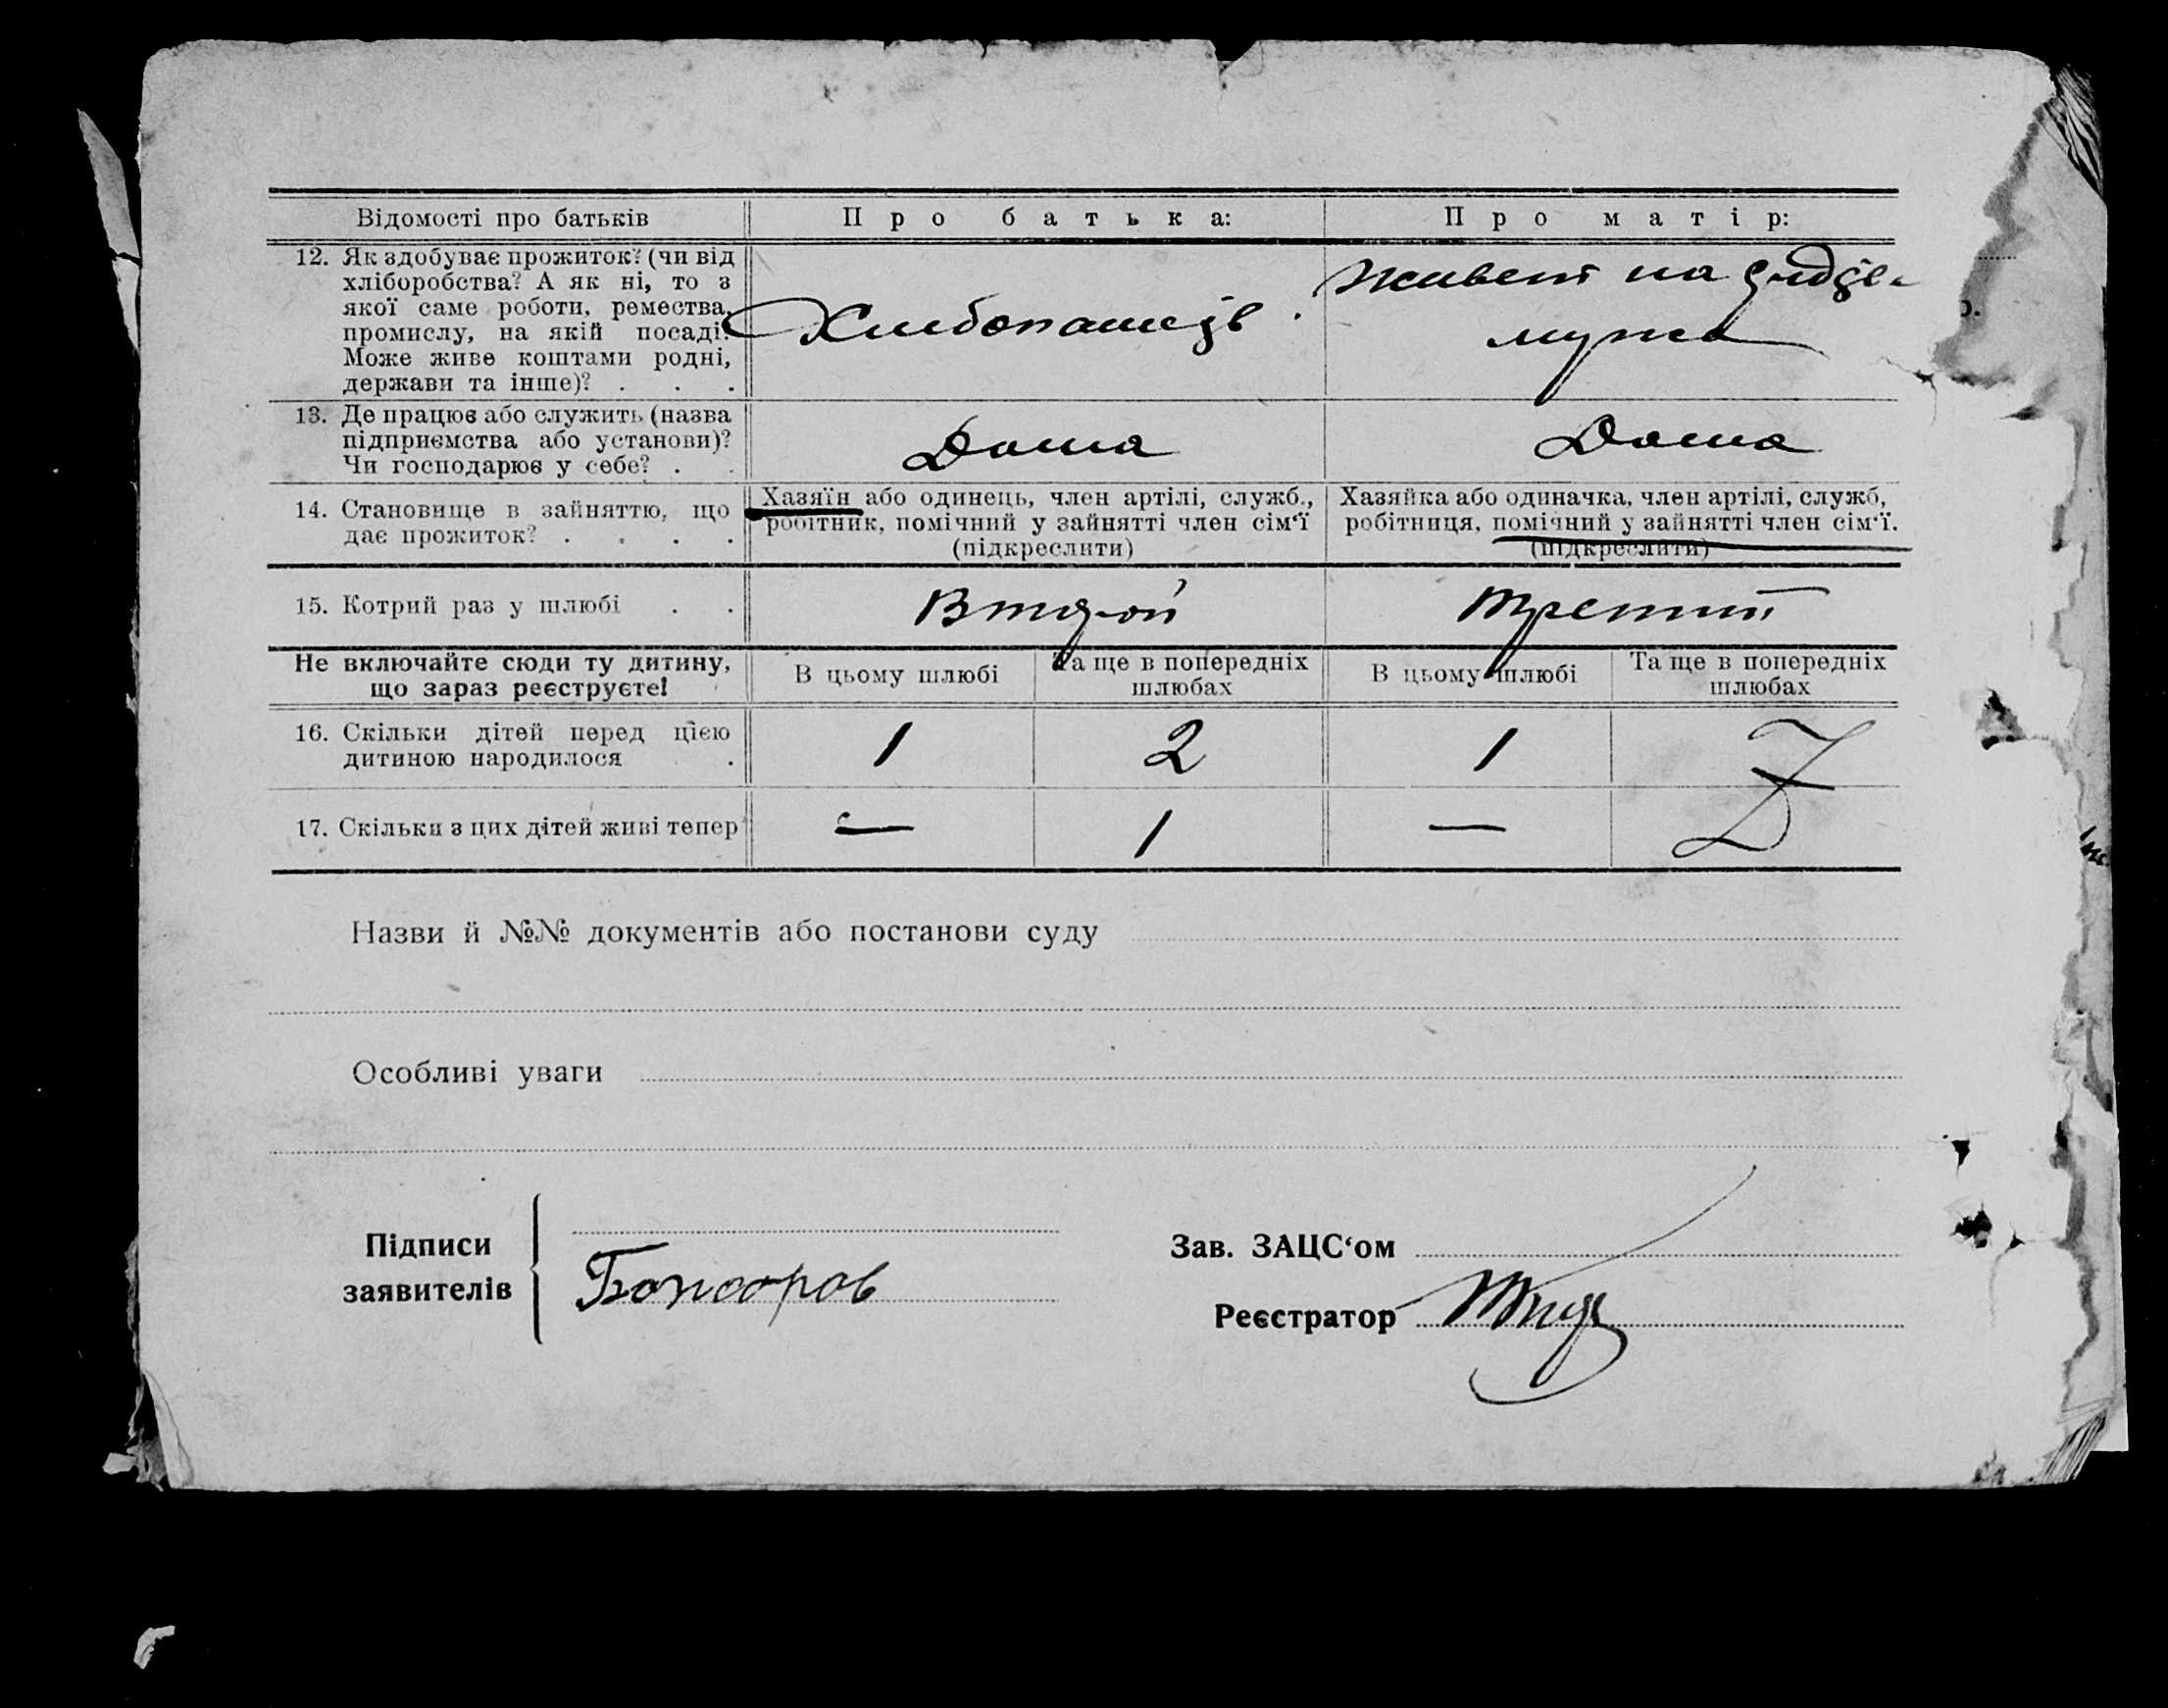 Відомості про батьків
Про батька:
Про матір:
12. Як здобуває прожиток? (чи від
хліборобства? А як ні, то з
якої саме роботи, ремества,
промислу, на якій посаді?
Може живе коштами родні,
держави та інше)? . . .
Хлебопашець
Живет на
мужа
13. Де працює або служить (назва
підприємства або установи)?
Чи господарює у себе? . .
Дома
Дома
14. Становище в зайняттю, що
дає прожиток? . . . .
Хазяїн або одинець, член артілі, служб.,
робітник, помічний у зайнятті член сім‘ї
(підкреслити)
Хазяйка або одиначка, член артілі, служб,
робітниця, помічний у зайнятті член сім‘ї.
(підкреслити)
15. Котрий раз у шлюбі . .
Второй
Третий
Не включайте сюди ту дитину,
що зараз реєструєте!
В цьому шлюбі
Та ще в попередніх
шлюбах
В цьому шлюбі
Та ще в попередніх
шлюбах
16. Скільки дітей перед цією
дитиною народилося .
1
2
1
7
17. Скільки з цих дітей живі тепер
—
1
—
Назви й №№ документів або постанови суду
Особливі уваги
Підписи
заявителів
Зав. ЗАЦС‘ом
Реєстратор